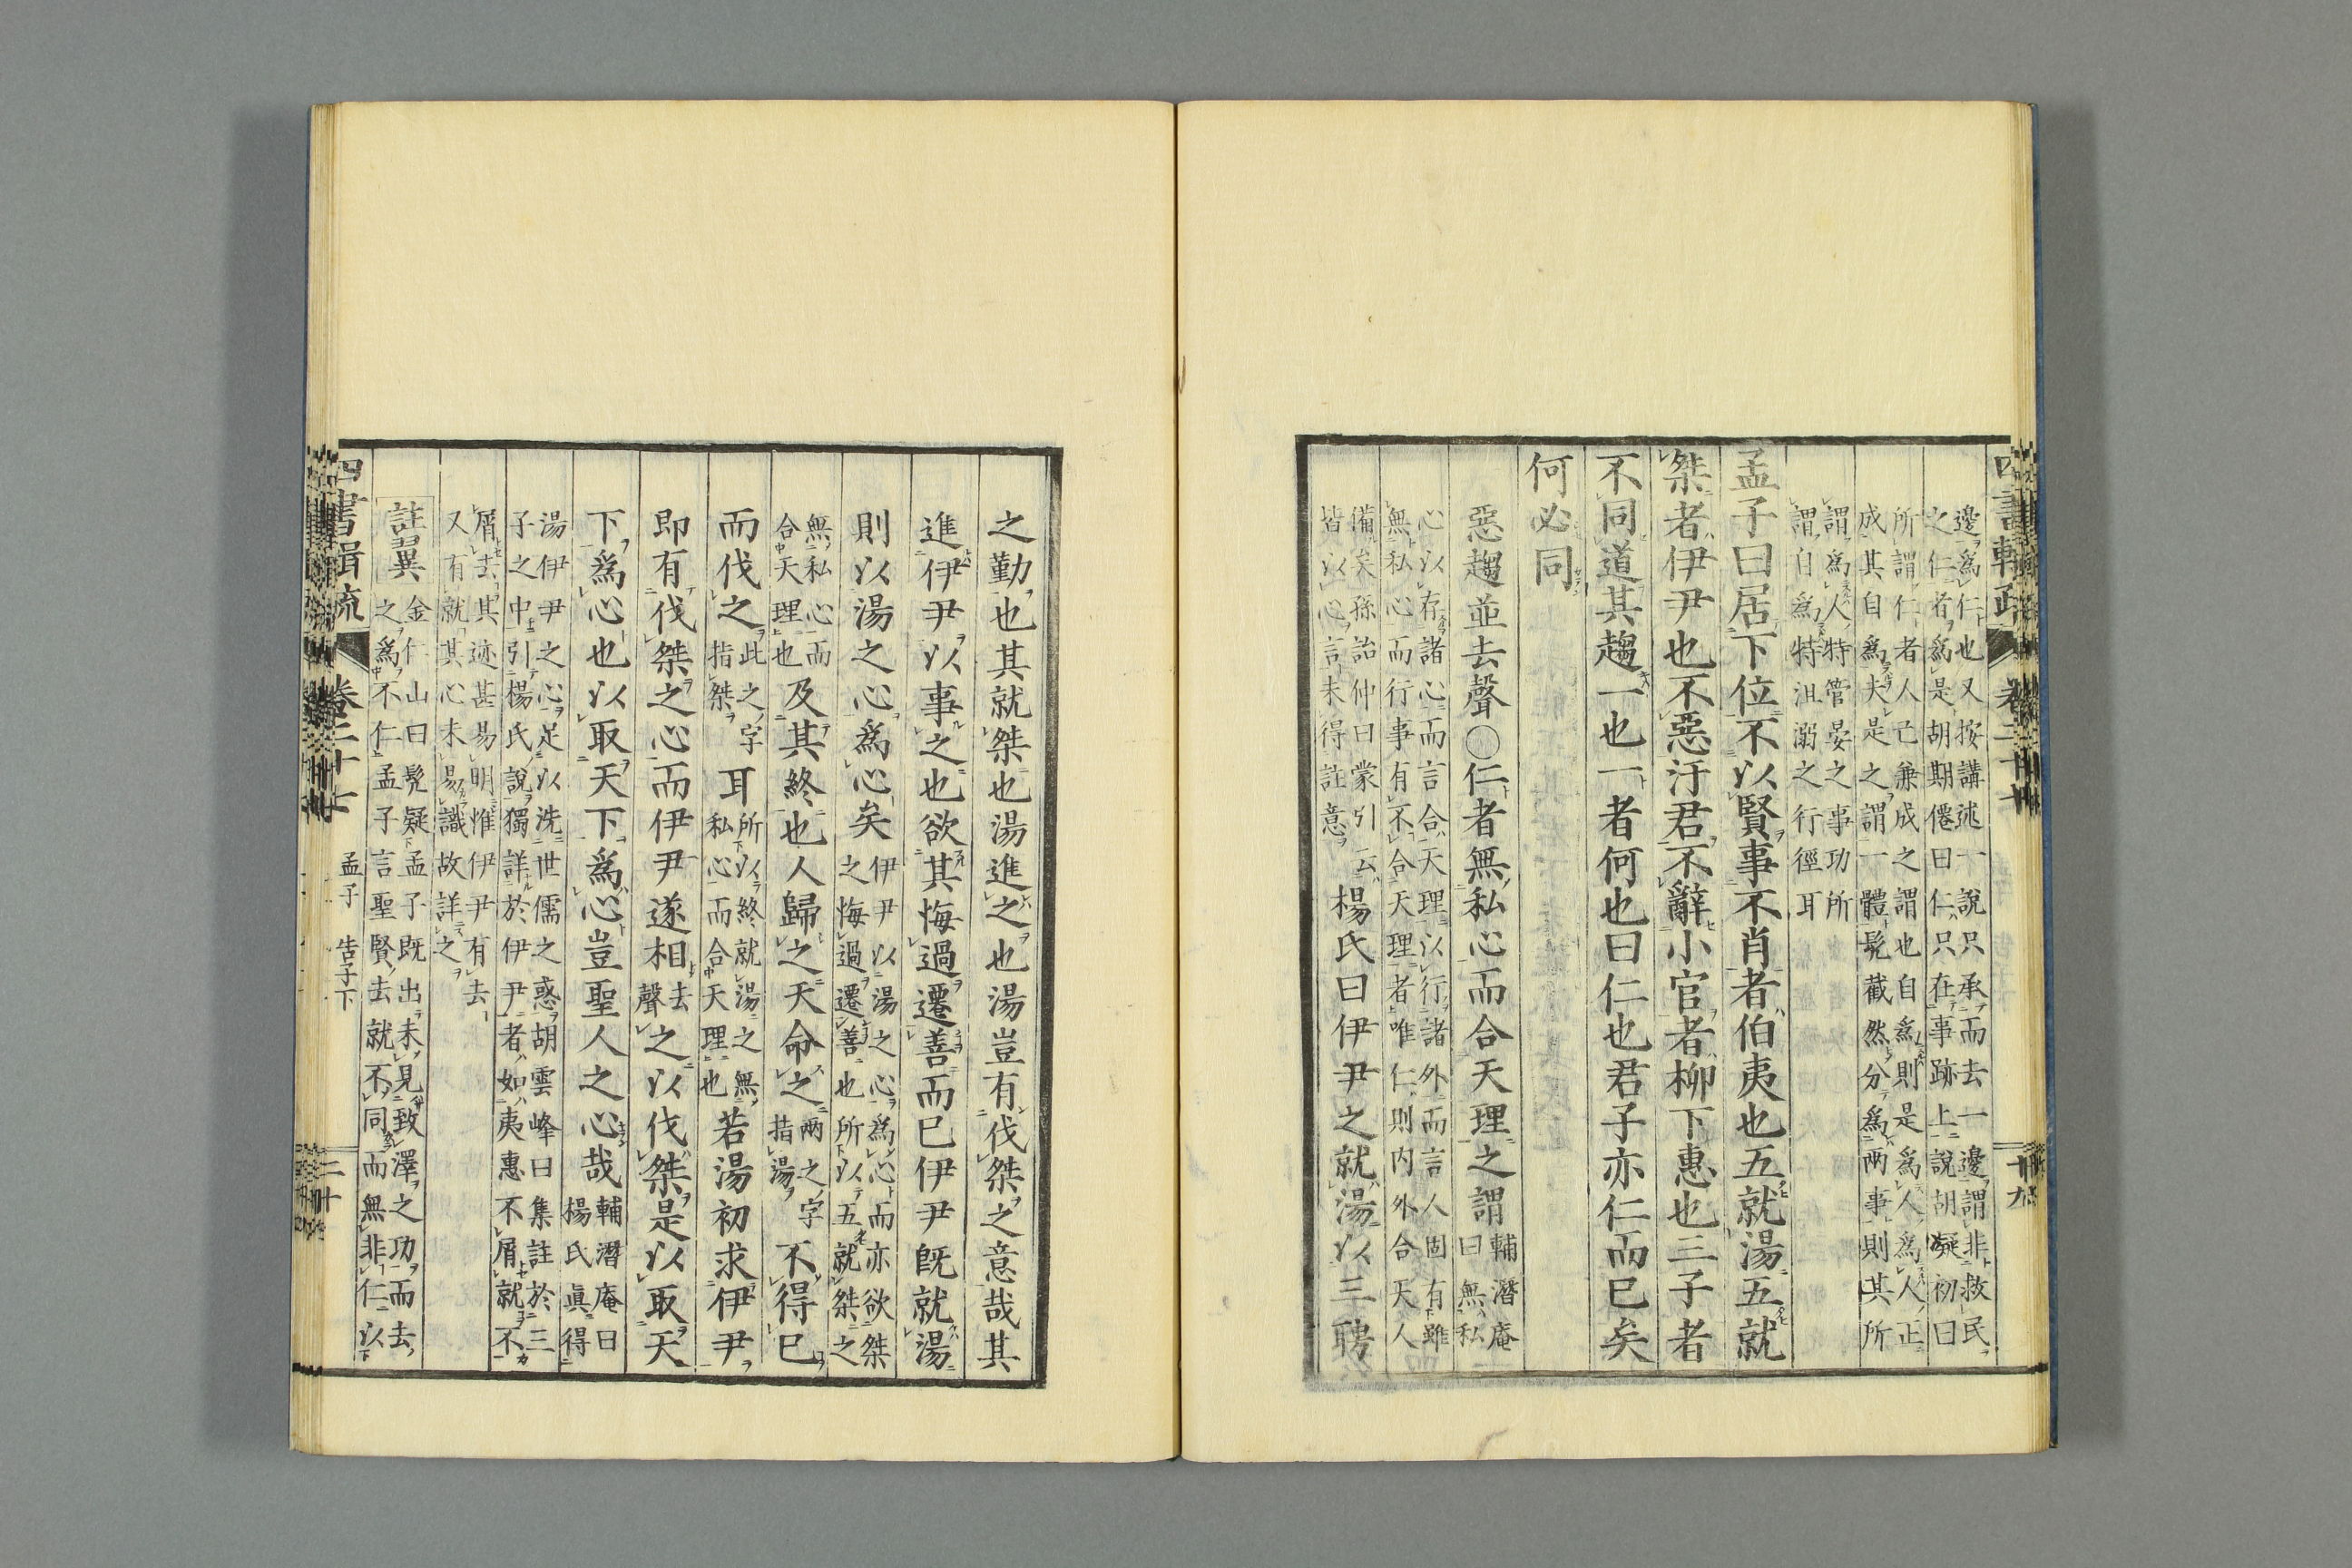 邊爲仁也又按講述一說只承而去一邊謂非救民
之仁者爲是胡期僊曰仁只在事跡上說胡凝初曰
所謂仁者人己兼成之謂也自爲則是爲人爲人正
成其自爲夫是之謂一體髡截然分爲兩事則其所
謂爲人特管晏之事功所
謂自爲特沮溺之行徑耳
孟子曰居下位不以賢事不肖者伯夷也五就湯五就
桀者伊尹也不惡汙君不辭小官者柳下惠也三子者
不同道其趨一也一者何也曰仁也君子亦仁而已矣
何必同
惡趨並去聲○仁者無私心而合天理之謂
輔潛庵
曰無私
心以存諸心而言合天理以行諸外而言人固有雖
無私心而行事有不合天理者唯仁則内外合天人
備矣孫詒仲曰蒙引云
皆以心言未得註意
楊氏曰伊尹之就湯以三聘
之勤也其就桀也湯進之也湯豈有伐桀之意哉其
進伊尹以事之也欲其悔過遷善而已伊尹旣就湯
則以湯之心爲心矣
伊尹以湯之心爲心而亦欲桀
之悔過遷善也所以五就桀之
無私心而
合天理也
及其終也人歸之天命之
兩之字
指湯
不得已
而伐之
此之字
指桀
耳
所以終就湯之無
私心而合天理也
若湯初求伊尹
即有伐桀之心而伊尹遂相
去
聲
之以伐桀是以取天
下爲心也以取天下爲心豈聖人之心哉
輔潛庵曰
楊氏眞得
湯伊尹之心足以洗世儒之惑胡雲峰曰集註於三
子之中引楊氏說獨詳於伊尹者如夷惠不屑就不
屑去其迹甚易明惟伊尹有去
又有就其心未易識故詳之
註翼
金仁山曰髡疑孟子既出未見致澤之功而去
之爲不仁孟子言聖賢去就不同而無非仁以
四書輯疏
卷二十七
孟子 告子下
二十